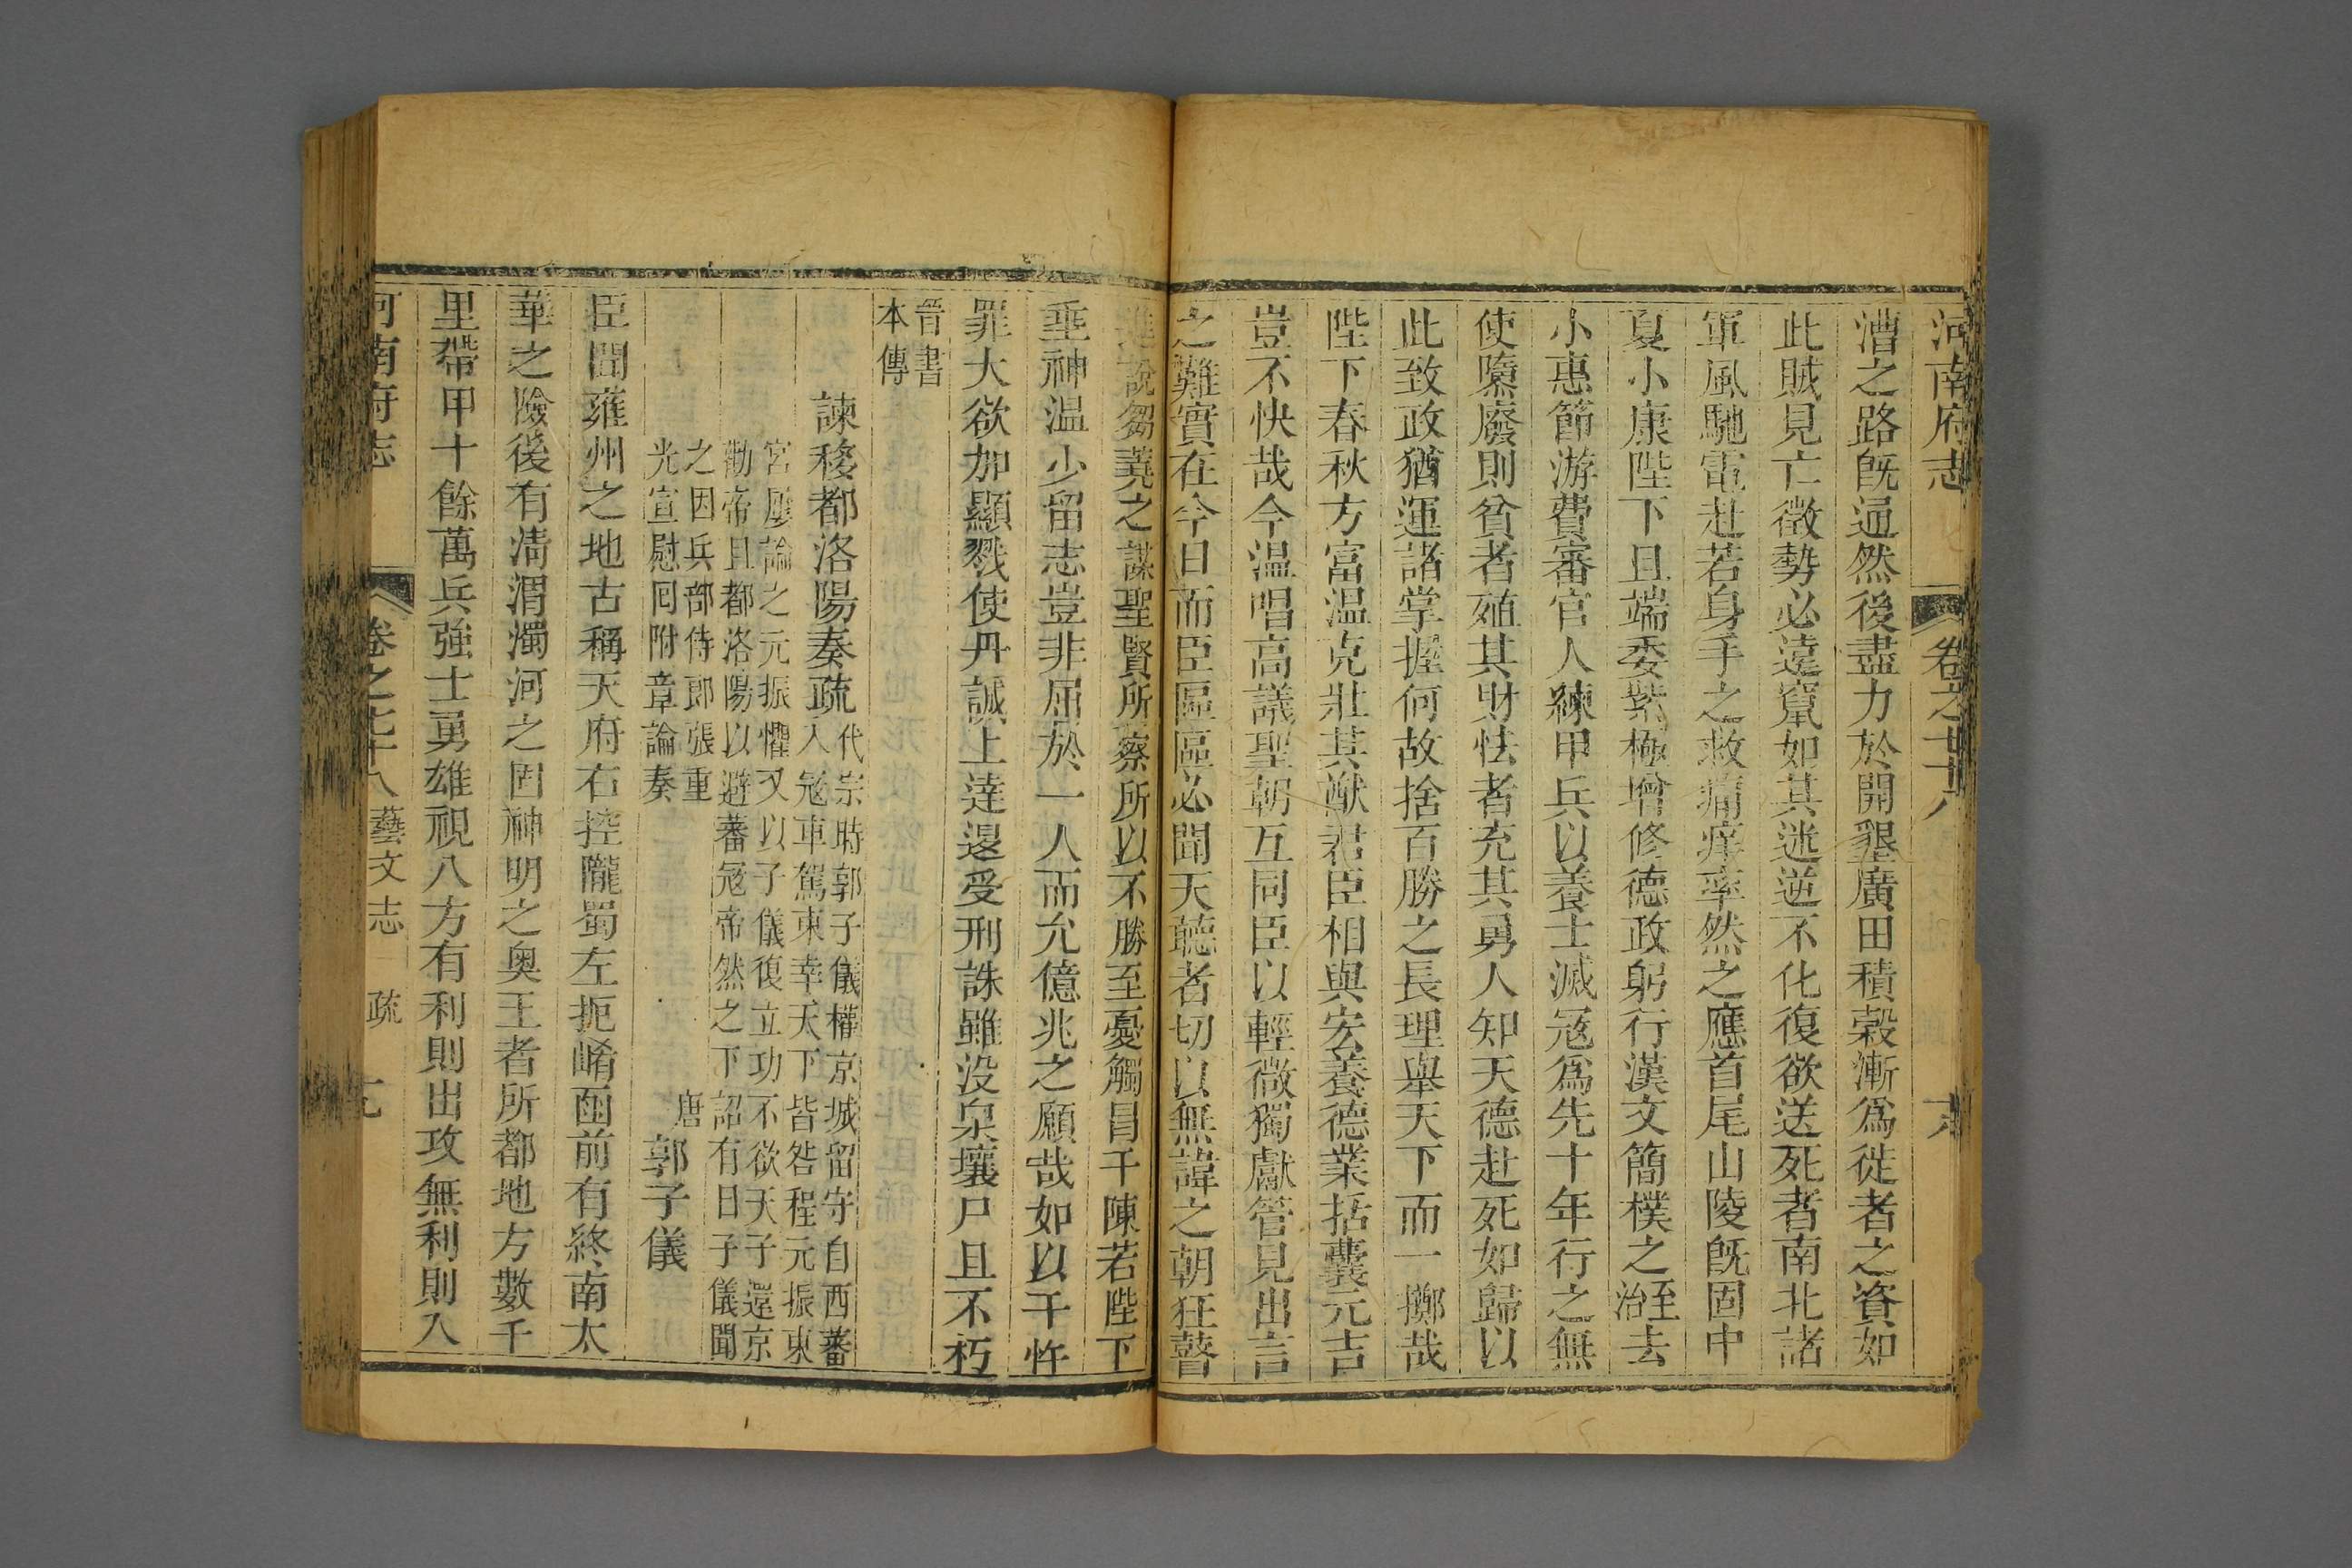 河南府志 卷之七十八
漕之路旣通然後盡力於開墾廣田積榖漸爲徙者之資如
此賊見亡徵勢必遠竄如其迷逆不化復欲送死者南北諸
軍風馳電赴若身手之救痛痒率然之應首尾山陵旣固中
夏小康陛下且端委紫極增修德政躬行漢文簡樸之至治去
小惠節游費審官人練甲兵以養士滅寇爲先十年行之無
使隳廢則貧者殖其財怯者充其勇人知天德赴死如歸以
此致政猶運諸掌握何故捨百勝之長理舉天下而一擲哉
陛下春秋方富温克壯其猷君臣相與宏養德業括囊元吉
豈不快哉今温唱高議聖朝互同臣以輕微獨獻管見出言
之難實在今日而臣區區必聞天聽者切以無諱之朝狂瞽
進說芻蕘之謀聖賢所察所以不勝至憂觸冒千陳若陛下
垂神温少留志豈非屈於一人而允億兆之願哉如以干忤
罪大欲加顯戮使丹誠上達退受刑誅雖没泉壤尸且不朽
晉書
本傳
諫移都洛陽奏疏
代宗時郭子儀權京城留守自西蕃
入寇車駕東幸天下皆咎程元振東
宮屢論之元振懼又以子儀復立功不欲天子還京
勸帝且都洛陽以避蕃寇帝然之下詔有日子儀聞
之因兵部侍郎張重
光宣慰囘附章論奏
唐 郭子儀
臣聞雍州之地古稱天府右控隴蜀左扼崤函前有終南太
華之險後有清渭濁河之固神明之奥王者所都地方數千
里帶甲十餘萬兵強士勇雄視八方有利則出攻無利則入
河南府志 卷之七十八 藝文志 疏